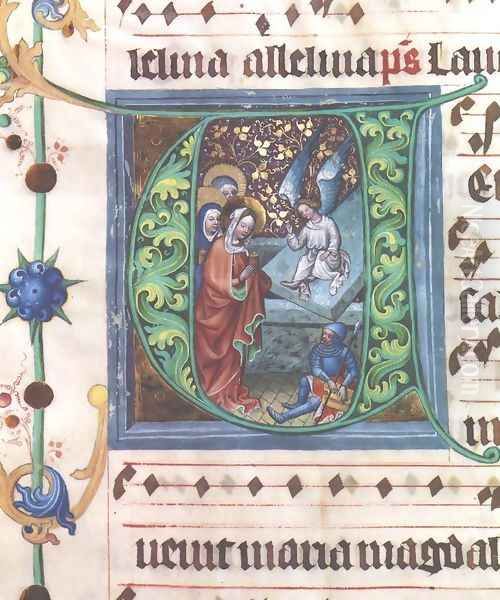 leluia alleluia ps Lau
U
sa
uenit maria magdal